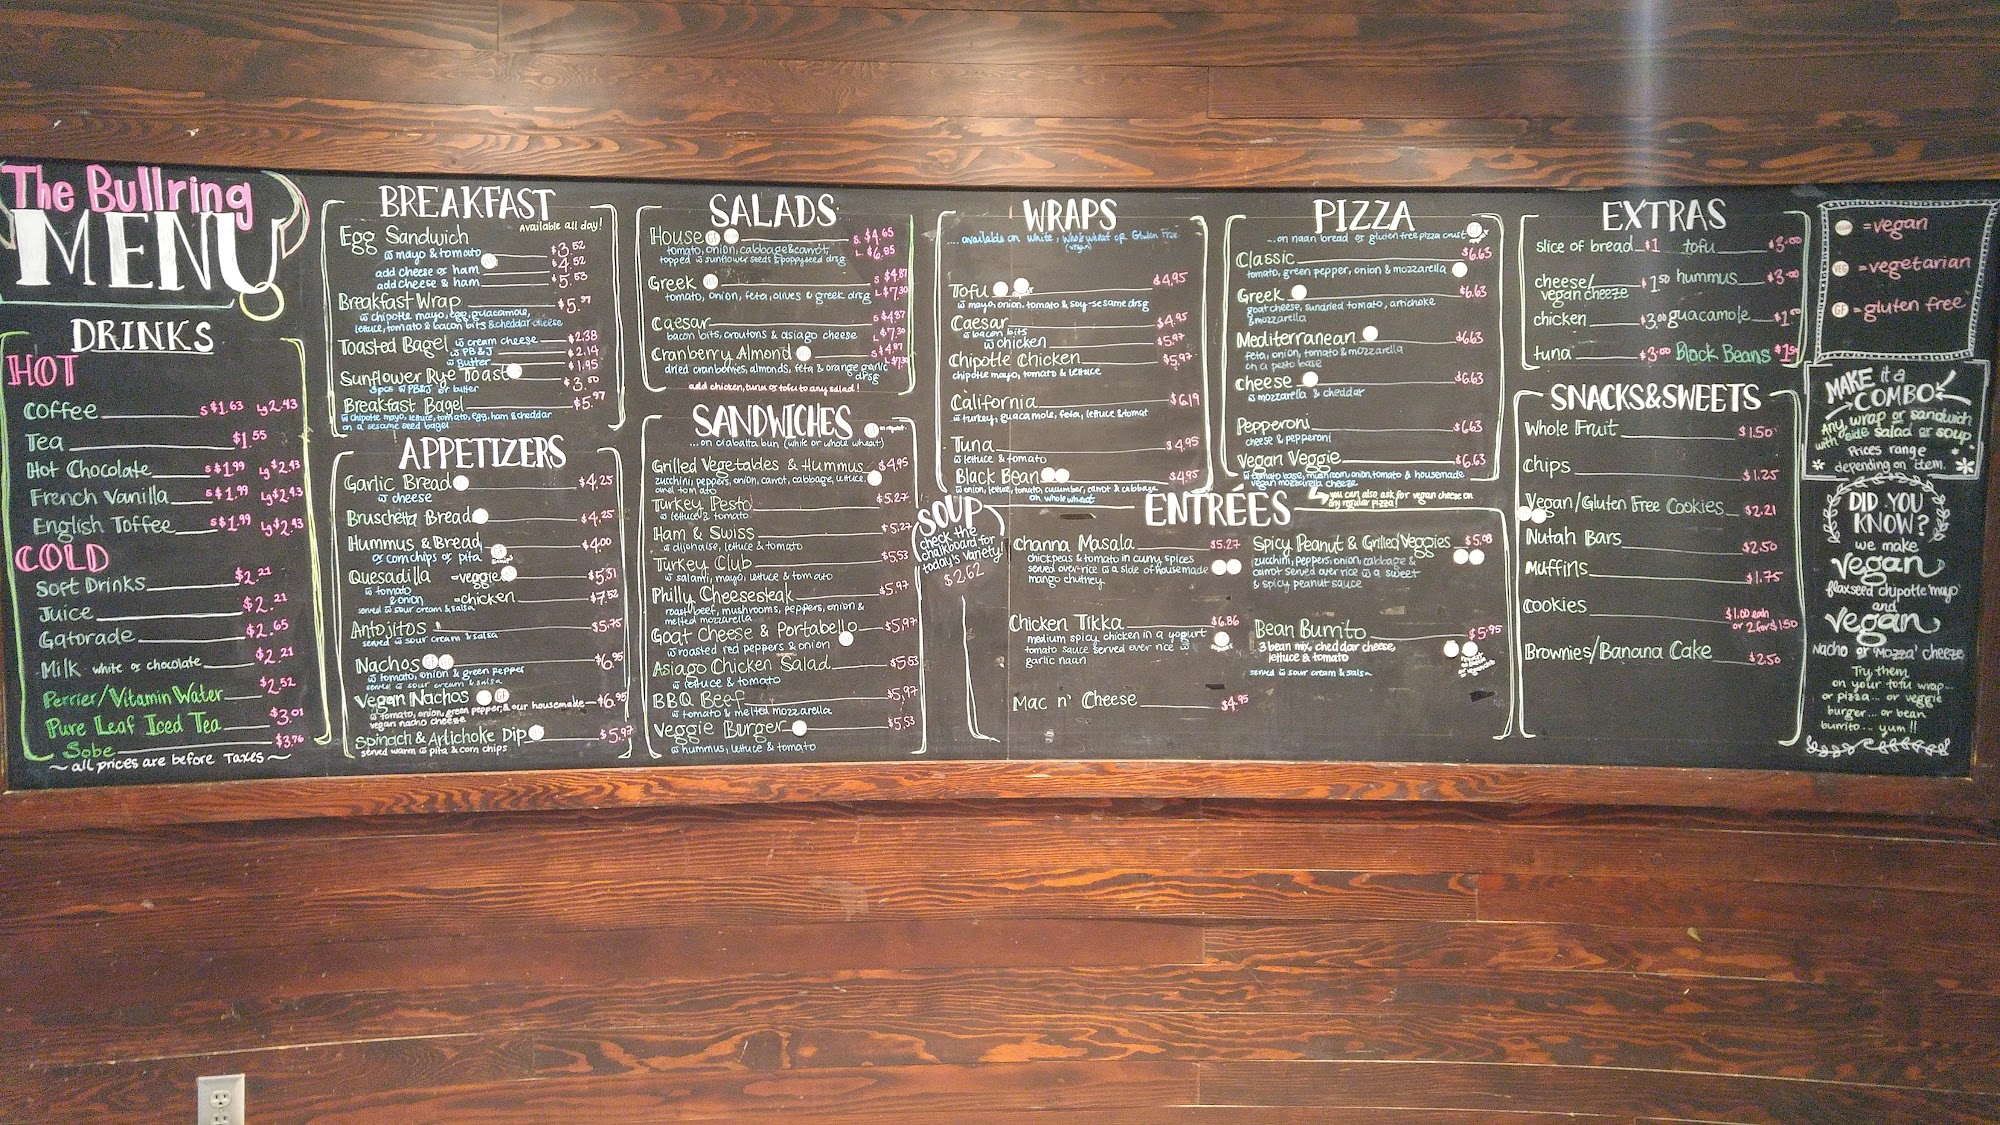 The Bullring
MENU
DRINKS
HOT
Coffee s $1.63 Lg 2.43
Tea $1.55
Hot Chocolate s $1.99 Lg $2.43
French Vanilla s $1.99 Lg $2.43
English Toffee s $1.99 Lg $2.43
COLD
Soft Drinks $2.21
Juice $2.21
Gatorade $2.65
Milk white or chocolate $2.21
Perrier/Vitamin Water $2.52
Pure Leaf Iced Tea $3.01
Sobe $3.76
~ all prices are before Taxes ~
BREAKFAST
Available all day!
Egg Sandwich
w mayo & tomato $3.52
add cheese or ham $4.52
add cheese & ham $5.53
Breakfast Wrap $5.97
w chipotle mayo, egg, guacamole,
lettuce, tomato & bacon bits & cheddar cheese
Toasted Bagel w cream cheese $2.38
w PB & J $2.14
w Butter $1.95
Sunflower Rye Toast $3.00
3pcs w PB&J or butter
Breakfast Bagel $5.97
w chipotle mayo, lettuce, tomato, egg, ham & cheddar
on a sesame seed bagel
APPETIZERS
Garlic Bread $4.25
w cheese
Bruschetta Bread $4.25
Hummus & Bread $4.00
or corn chips or pita
Quesadilla -veggie $5.31
w tomato
& onion -chicken $7.52
served w sour cream & salsa
Antojitos $5.75
served w sour cream & salsa
Nachos $6.95
w tomato, onion & green pepper
served w sour cream & salsa
Vegan Nachos GF $6.95
w tomato, onion, green pepper, & our housemade
vegan nacho cheese
Spinach & Artichoke Dip $5.97
served warm w pita & corn chips
SALADS
House s. $4.65
tomato, onion, cabbage & carrot L. $6.85
topped w sunflower seeds & poppyseed drsg
Greek s $4.87
tomato, onion, feta, olives & greek drsg L $7.30
Caesar s $4.87
bacon bits, croutons & asiago cheese L $7.30
Cranberry Almond s $4.87
dried cranberries, almonds, feta & orange garlic L $7.30
drsg
add chicken, tuna or tofu to any salad!
SANDWICHES
on request
...on ciabatta bun (white or whole wheat)
Grilled Vegetables & Hummus $4.95
zucchini, peppers, onion, carrot, cabbage, lettuce
and tomato
Turkey Pesto $5.27
w lettuce & tomato
Ham & Swiss $5.27
w dijonaise, lettuce & tomato
Turkey Club $5.53
w salami, mayo, lettuce & tomato
Philly Cheesesteak $5.97
roast beef, mushrooms, peppers, onion &
melted mozzarella
Goat Cheese & Portabello $5.97
w roasted red peppers & onion
Asiago Chicken Salad $5.53
w lettuce & tomato
BBQ Beef $5.97
w tomato & melted mozzarella
Veggie Burger $5.53
w hummus, lettuce & tomato
SOUP
check the
chalkboard for
today's variety!
$2.62
WRAPS
....available on white, whole wheat or Gluten Free
(vegan)
Tofu $4.95
w mayo, onion, tomato & soy-sesame drsg
Caesar $4.95
w bacon bits
w chicken $5.97
Chipotle Chicken $5.97
chipotle mayo, tomato & lettuce
California $6.19
w turkey, guacamole, feta, lettuce & tomat
Tuna $4.95
w lettuce & tomato
Black Bean $4.95
w onion, lettuce, tomato, cucumber, carrot & cabbage
on whole wheat
PIZZA
...on naan bread or gluten free pizza crust
Classic $6.63
tomato, green pepper, onion & mozzarella
Greek $6.63
goat cheese, sundried tomato, artichoke
& mozzarella
Mediterranean $6.63
feta, onion, tomato & mozzarella
on a pesto base
Cheese $6.63
w mozzarella & cheddar
Pepperoni $6.63
cheese & pepperoni
Vegan Veggie $6.63
w tomato base, mushroom, onion, tomato & housemade
vegan mozzarella cheese
you can also ask for vegan cheese on
any regular pizza!
ENTRÉES
Channa Masala $5.27
chickpeas & tomato in curry spices
served over rice w a side of housemade
mango chutney
Chicken Tikka $6.86
medium spicy chicken in a yogurt
tomato sauce served over rice w
garlic naan
Mac n' Cheese $4.95
Spicy Peanut & Grilled Veggies $5.08
zucchini, peppers, onion, cabbage &
carrot served over rice w a sweet
& spicy peanut sauce
Bean Burrito $5.95
3 bean mix, cheddar cheese,
lettuce & tomato
served w sour cream & salsa
EXTRAS
slice of bread $1 tofu $3.00
cheese/ $1.50 hummus $3.00
vegan cheeze
chicken $3.00 guacamole
tuna $3.00 Black Beans
SNACKS & SWEETS
Whole Fruit $1.50
Chips $1.25
Vegan/Gluten Free Cookies $2.21
Nutah Bars $2.50
Muffins $1.75
Cookies $1.00 each
or 2 for $1.50
Brownies/Banana Cake $2.50
=vegan
VEG =vegetarian
GF =gluten free
MAKE it a
COMBO
Any wrap or sandwich
with a side salad or soup.
Prices range
depending on item.
DID YOU
KNOW?
we make
vegan
flaxseed chipotle mayo
and
vegan
Nacho or Mozza' cheeze
Try them
on your tofu wrap...
or pizza... or veggie
burger... or bean
burrito... yum!!